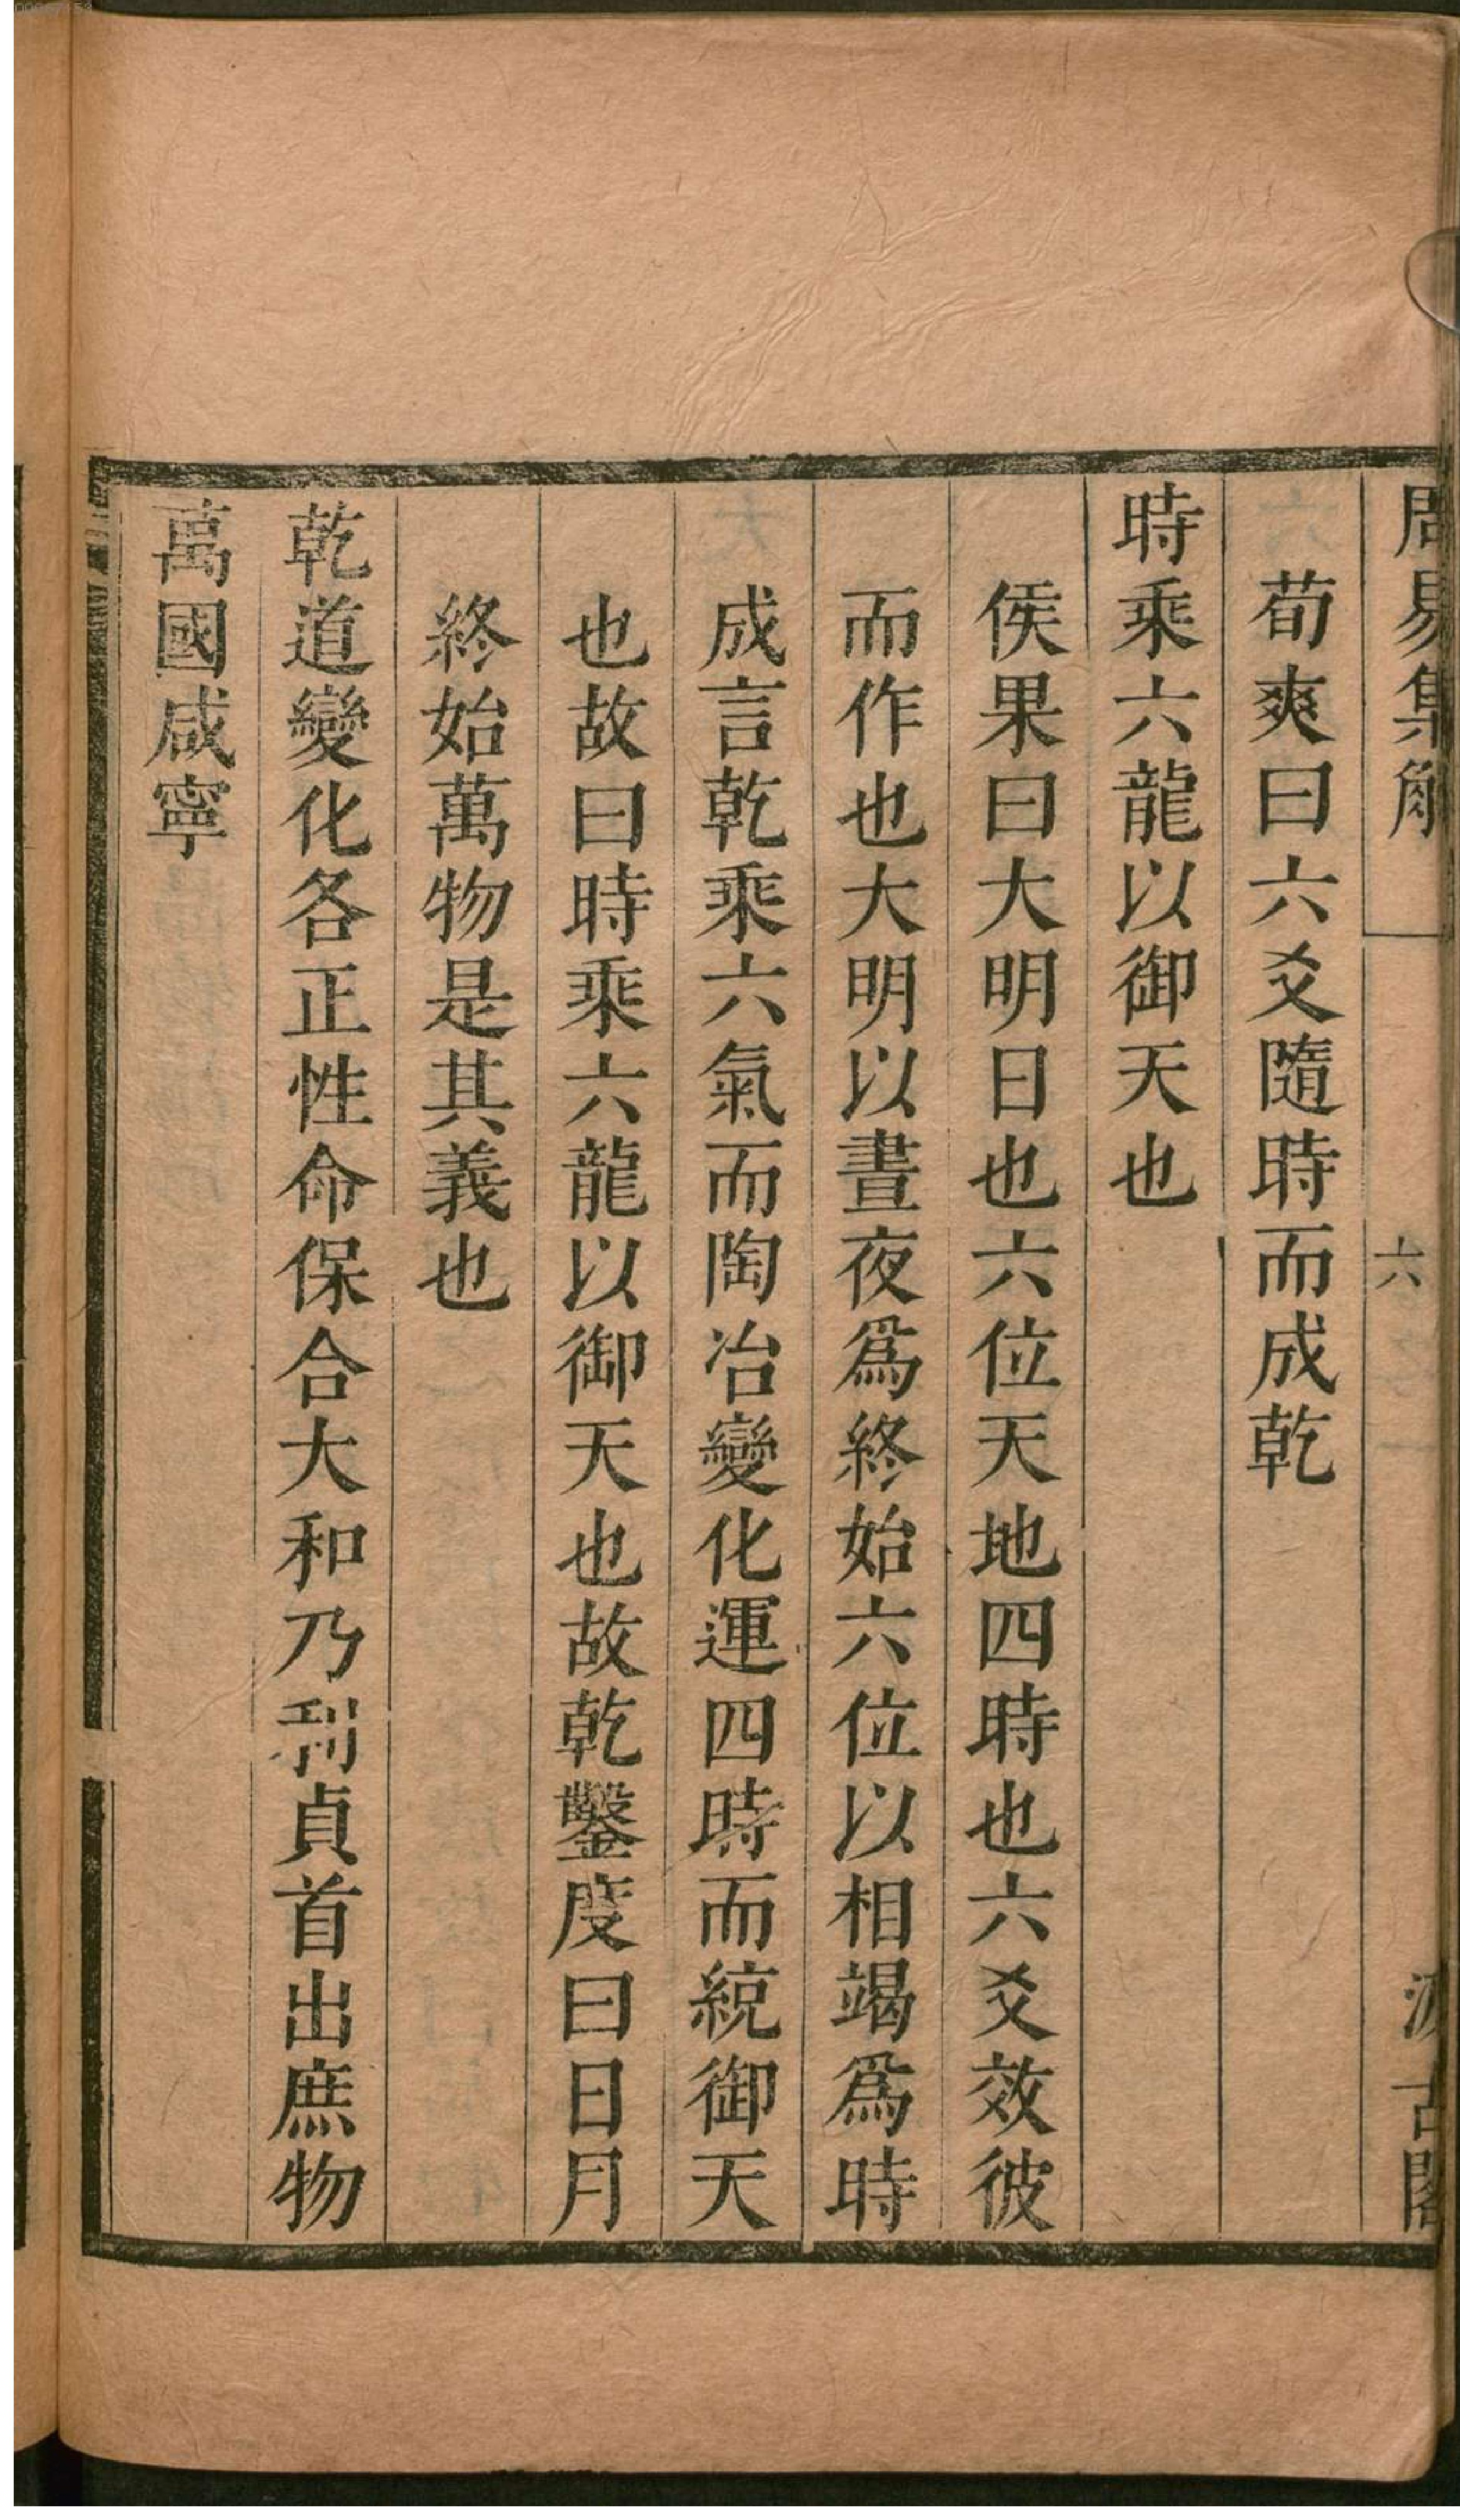 周易集解
六
汲古閣
荀爽曰六爻隨時而成乾
時乘六龍以御天也
侯果曰大明日也六位天地四時也六爻效彼
而作也大明以晝夜爲終始六位以相竭爲時
成言乾乘六氣而陶冶變化運四時而統御天
也故曰時乘六龍以御天也故乾鑿度曰日月
終始萬物是其義也
乾道變化各正性命保合大和乃利貞首出庶物
萬國咸寧